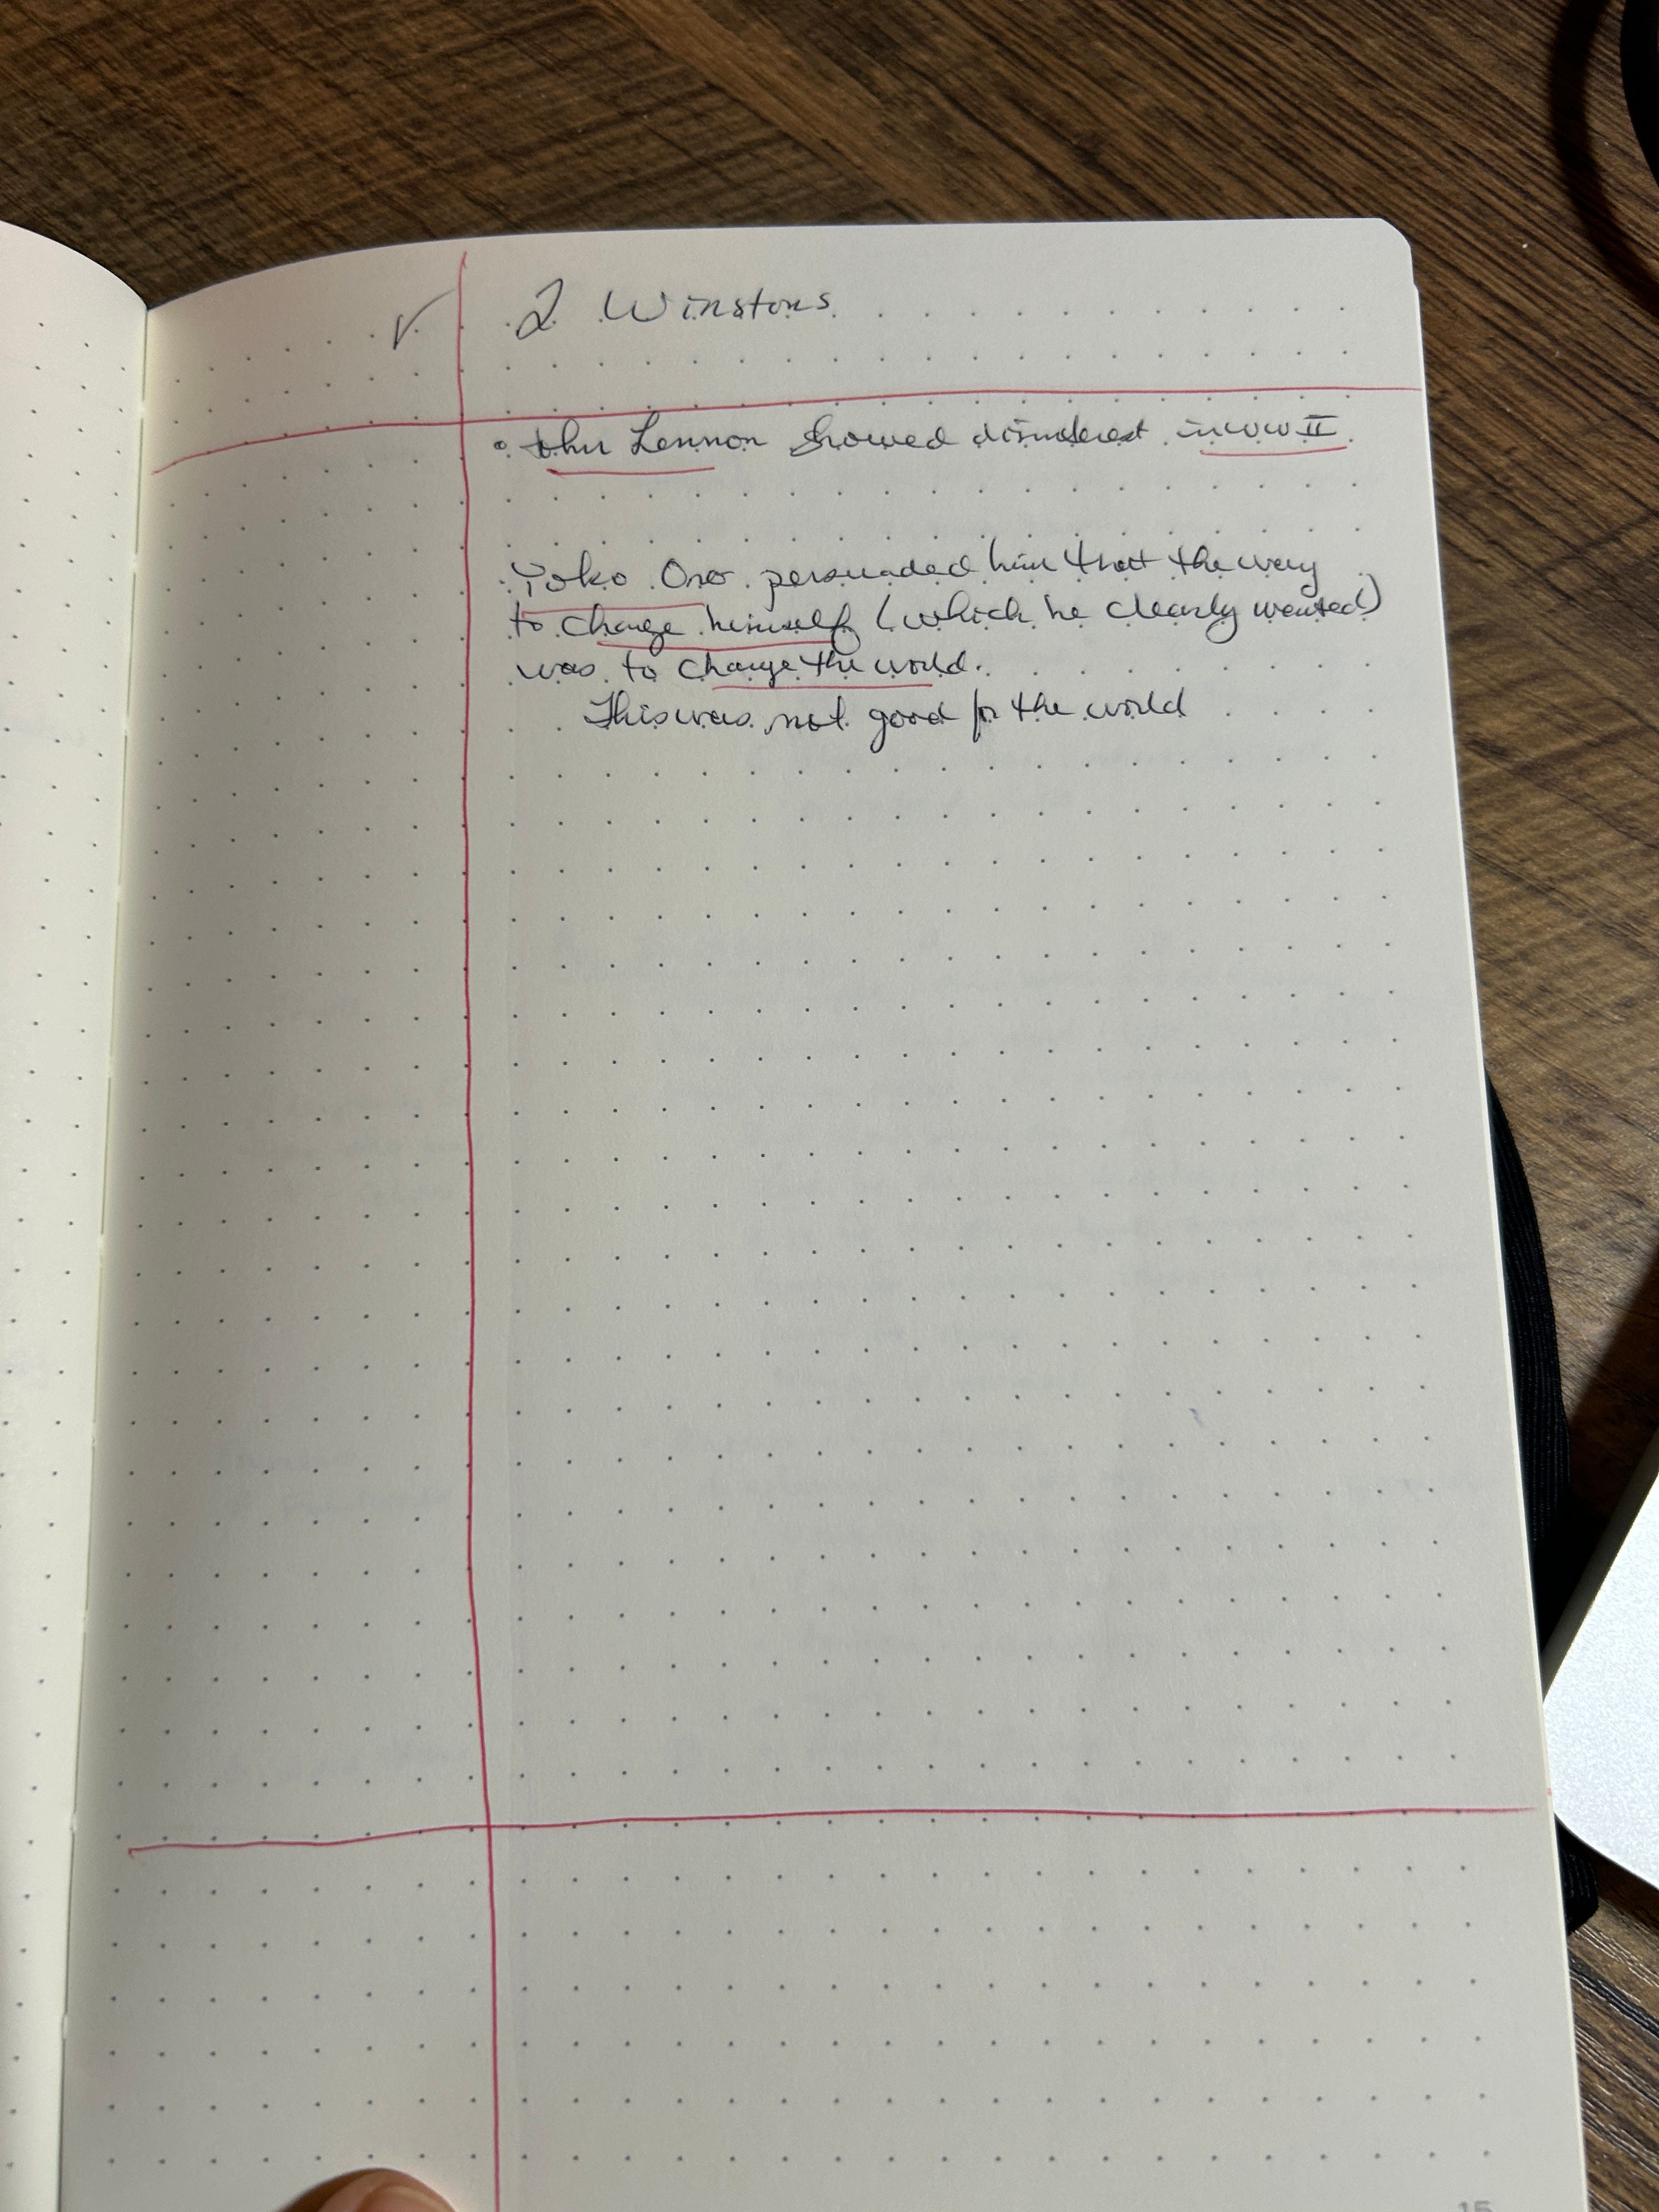 ✓ 2 Winstons
• John Lennon showed disinterest in WW II
Yoko Ono persuaded him that the way
to change himself (which he clearly wanted)
was to change the world.
This was not good for the world
15